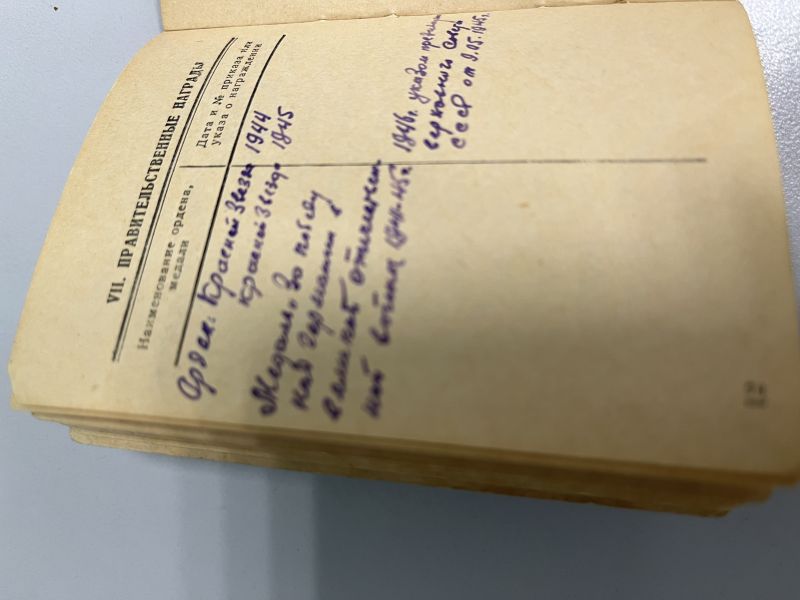 VII. ПРАВИТЕЛЬСТВЕННЫЕ НАГРАДЫ
Наименование ордена, медали
Дата и № приказа или указа о награждении
Орден: Красной Звезды 1944
Красной Звезды 1945
Медаль "За победу
над Германией в
Великой отечествен
ной войне 1941-45г.
1946г. указом
верховного
СССР от 9.05.1945г.
12